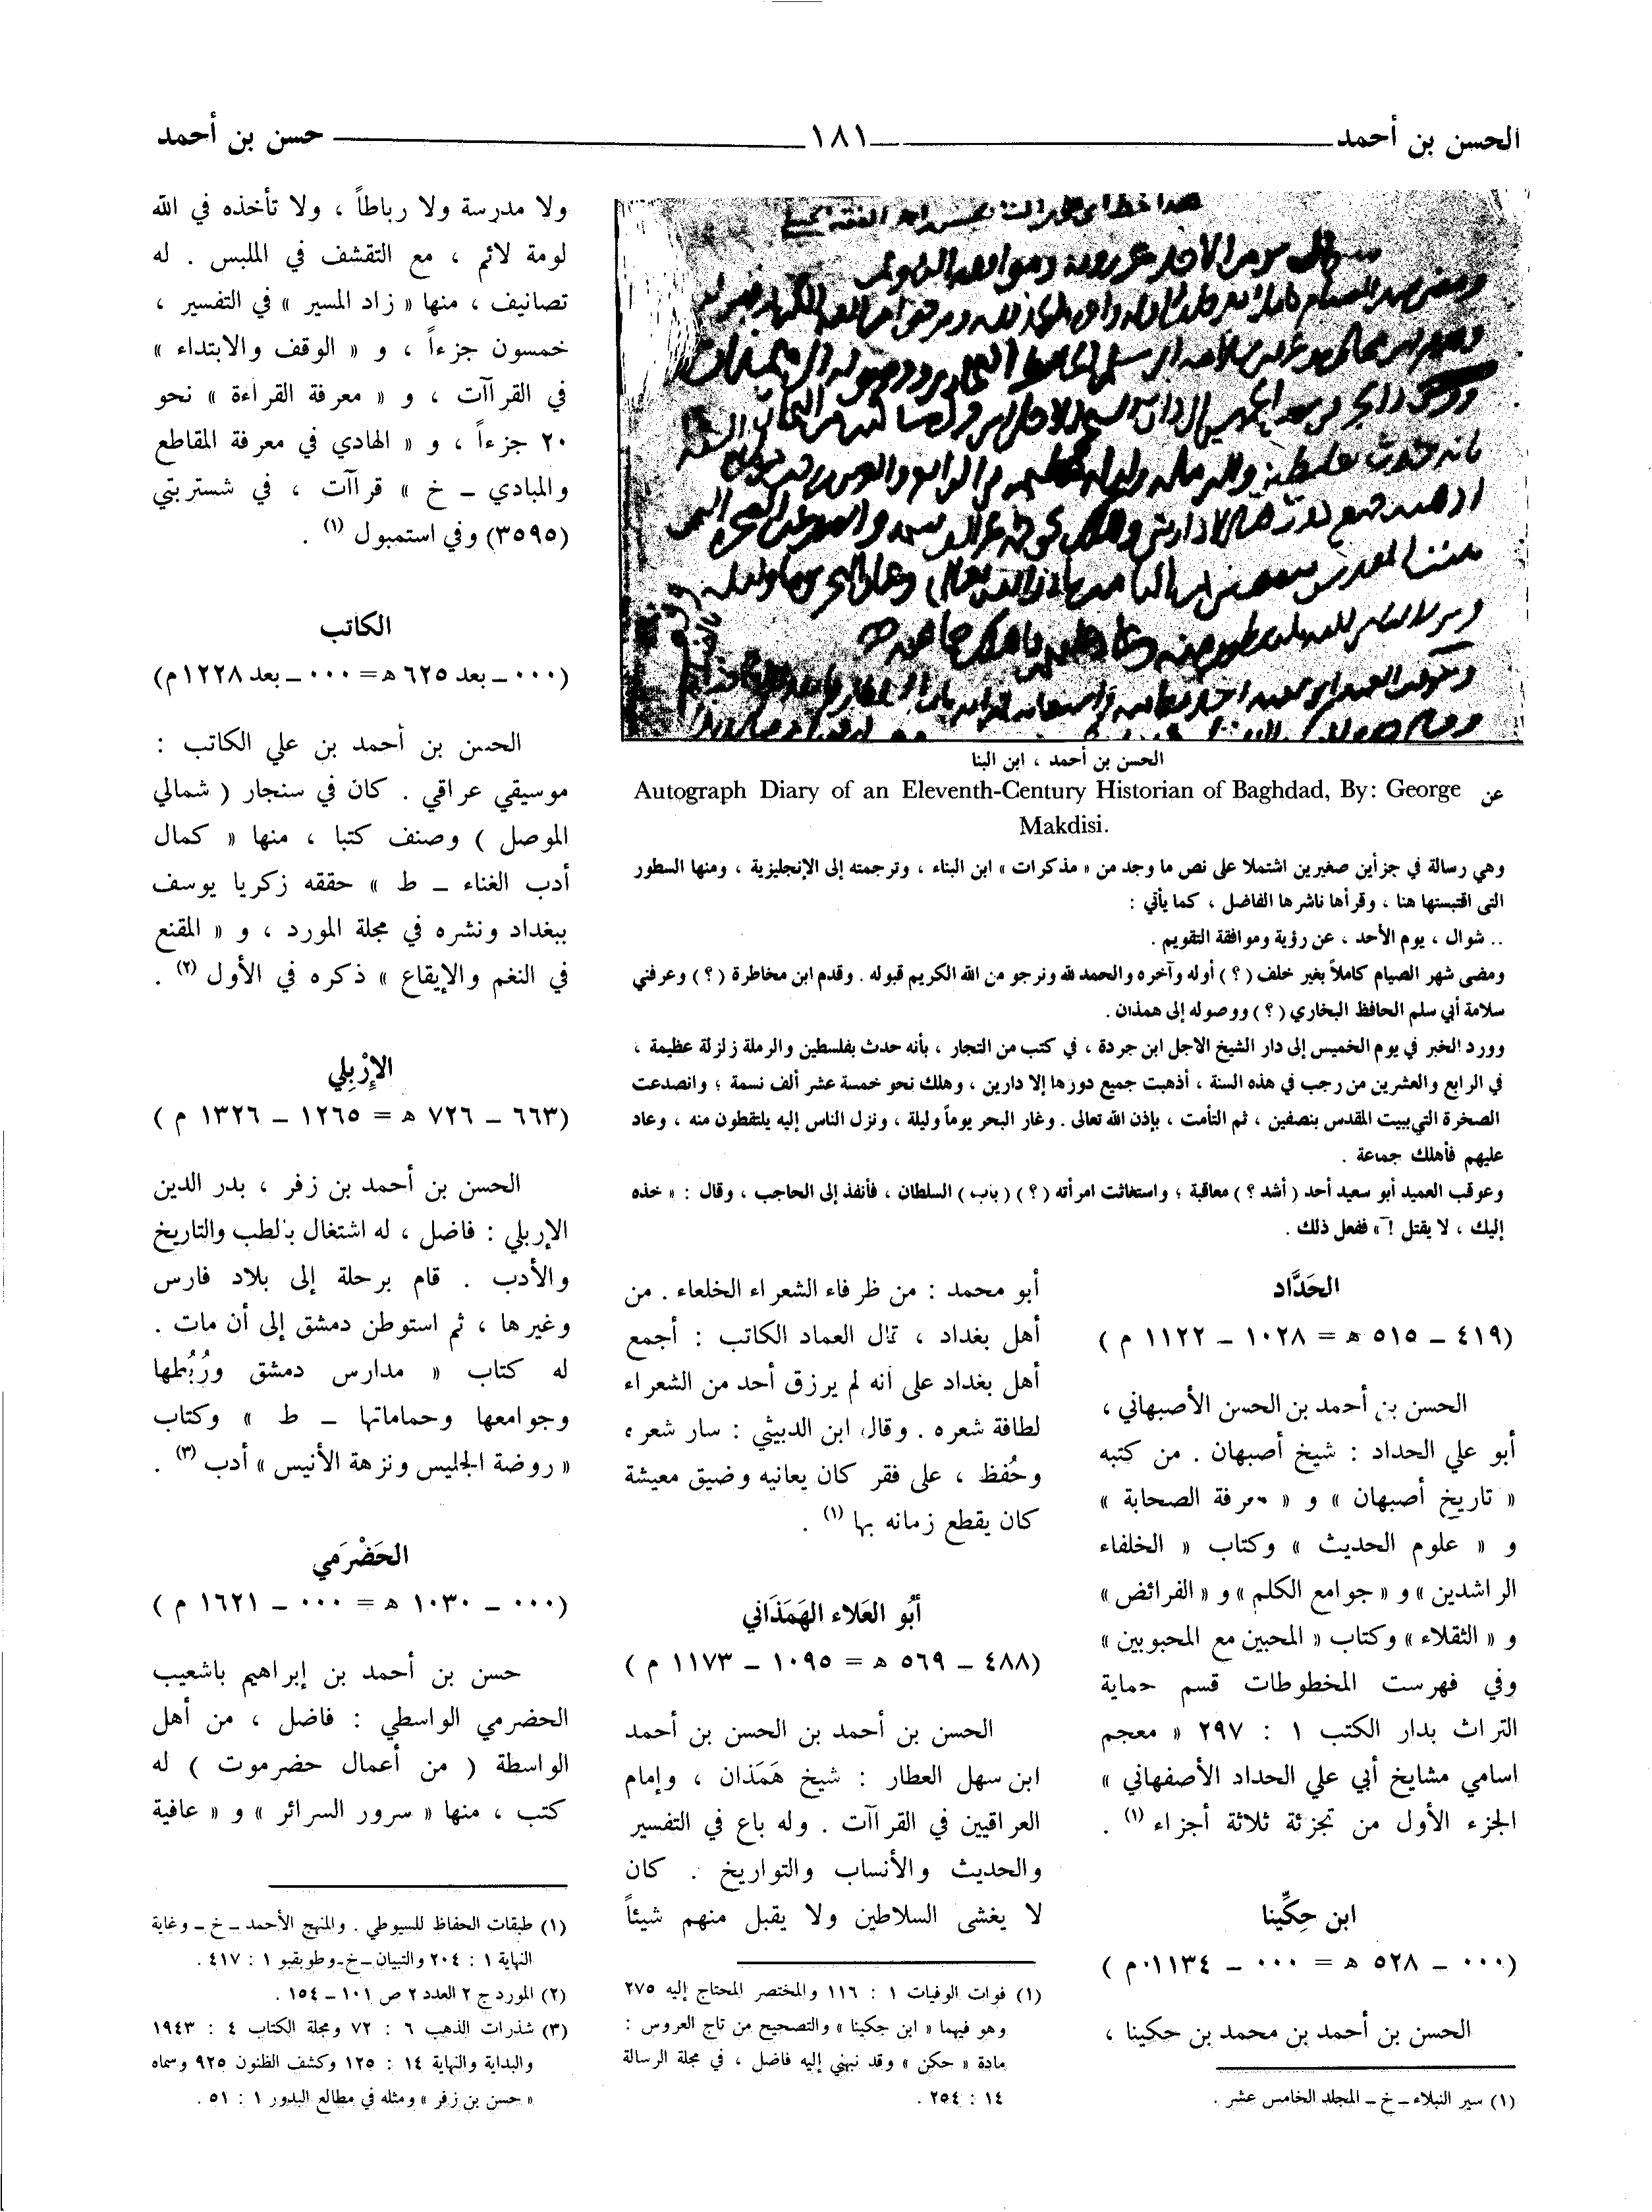 الحسن بن أحمد
١٨١
حسن بن أحمد
الحسن بن أحمد ، ابن البنا
عن Autograph Diary of an Eleventh-Century Historian of Baghdad, By: George
Makdisi.
وهي رسالة في جزأين صغيرين اشتملا على نص ما وجد من « مذكرات » ابن البناء ، وترجمته إلى الإنجليزية ، ومنها السطور
التى اقتبستها هنا ، وقرأها ناشرها الفاضل ، كما يأتي :
.. شوال ، يوم الأحد ، عن رؤية وموافقة التقويم .
ومضى شهر الصيام كاملاً بغير خلف ( ؟ ) أوله وآخره والحمد لله ونرجو من الله الكريم قبوله . وقدم ابن مخاطرة ( ؟ ) وعرفني
سلامة أبي سلم الحافظ البخاري ( ؟ ) ووصوله إلى همذان .
وورد الخبر في يوم الخميس إلى دار الشيخ الاجل ابن جردة ، في كتب من التجار ، بأنه حدث بفلسطين والرملة زلزلة عظيمة ،
في الرابع والعشرين من رجب في هذه السنة ، أذهبت جميع دورها إلا دارين ، وهلك نحو خمسة عشر ألف نسمة ؛ وانصدعت
الصخرة التي ببيت المقدس بنصفين ، ثم التأمت ، بإذن الله تعالى . وغار البحر يوماً وليلة ، ونزل الناس إليه يلتقطون منه ، وعاد
عليهم فأهلك جماعة .
وعوقب العميد أبو سعيد أحد ( أشد ؟ ) معاقبة ؛ واستغاثت امرأته ( ؟ ) ( باب ) السلطان ، فأنفذ إلى الحاجب ، وقال : « خذه
إليك ، لا يقتل ! » ففعل ذلك .
الحَدَّاد
(٤١٩ – ٥١٥ ه = ١٠٢٨ – ١١٢٢ م )
الحسن بن أحمد بن الحسن الأصبهاني ،
أبو علي الحداد : شيخ أصبهان . من كتبه
« تاريخ أصبهان » و « معرفة الصحابة »
و « علوم الحديث » وكتاب « الخلفاء
الراشدين » و « جوامع الكلم » و « الفرائض »
و « الثقلاء » وكتاب « المحبين مع المحبوبين »
وفي فهرست المخطوطات قسم حماية
التراث بدار الكتب ١ : ٢٩٧ « معجم
اسامي مشايخ أبي علي الحداد الأصفهاني »
الجزء الأول من تجزئة ثلاثة أجزاء (١) .
ابن حِكِّينا
(٠٠٠ – ٥٢٨ ه = ٠٠٠ – ١١٣٤م )
الحسن بن أحمد بن محمد بن حكينا ،
(١) سير النبلاء – خ – المجلد الخامس عشر .
أبو محمد : من ظرفاء الشعراء الخلعاء . من
أهل بغداد ، قال العماد الكاتب : أجمع
أهل بغداد على أنه لم يرزق أحد من الشعراء
لطافة شعره . وقال ابن الدبيثي : سار شعره
وحُفظ ، على فقر كان يعانيه وضيق معيشة
كان يقطع زمانه بها (١) .
أبُو العَلاء الهَمَذَاني
(٤٨٨ – ٥٦٩ ه = ١٠٩٥ – ١١٧٣ م )
الحسن بن أحمد بن الحسن بن أحمد
ابن سهل العطار : شيخ هَمَذان ، وإمام
العراقيين في القراآت . وله باع في التفسير
والحديث والأنساب والتواريخ . كان
لا يغشى السلاطين ولا يقبل منهم شيئاً
(١) فوات الوفيات ١ : ١١٦ والمختصر المحتاج إليه ٢٧٥
وهو فيهما « ابن جكينا » والتصحيح من تاج العروس :
مادة « حكن » وقد نبهني إليه فاضل ، في مجلة الرسالة
١٤ : ٢٥٤ .
ولا مدرسة ولا رباطاً ، ولا تأخذه في الله
لومة لائم ، مع التقشف في الملبس . له
تصانيف ، منها « زاد المسير » في التفسير ،
خمسون جزءاً ، و « الوقف والابتداء »
في القراآت ، و « معرفة القراءة » نحو
٢٠ جزءاً ، و « الهادي في معرفة المقاطع
والمبادي – خ » قراآت ، في شستربتي
(٣٥٩٥) وفي استمبول (١) .
الكاتب
(٠٠٠ – بعد ٦٢٥ ه = ٠٠٠ – بعد ١٢٢٨م)
الحسن بن أحمد بن علي الكاتب :
موسيقي عراقي . كان في سنجار ( شمالي
الموصل ) وصنف كتبا ، منها « كمال
أدب الغناء – ط » حققه زكريا يوسف
ببغداد ونشره في مجلة المورد ، و « المقنع
في النغم والإيقاع » ذكره في الأول (٢) .
الإرْبِلي
(٦٦٣ – ٧٢٦ ه = ١٢٦٥ – ١٣٢٦ م )
الحسن بن أحمد بن زفر ، بدر الدين
الإربلي : فاضل ، له اشتغال بالطب والتاريخ
والأدب . قام برحلة إلى بلاد فارس
وغيرها ، ثم استوطن دمشق إلى أن مات .
له كتاب « مدارس دمشق ورُبُطها
وجوامعها وحماماتها – ط » وكتاب
« روضة الجليس ونزهة الأنيس » أدب (٣) .
الحَضْرَمي
(٠٠٠ – ١٠٣٠ ه = ٠٠٠ – ١٦٢١ م )
حسن بن أحمد بن إبراهيم باشعيب
الحضرمي الواسطي : فاضل ، من أهل
الواسطة ( من أعمال حضرموت ) له
كتب ، منها « سرور السرائر » و « عافية
(١) طبقات الحفاظ للسيوطي . والمنهج الأحمد – خ – وغاية
النهاية ١ : ٢٠٤ والتبيان – خ – وطوبقبو ١ : ٤١٧ .
(٢) المورد ج ٢ العدد ٢ ص ١٠١ – ١٥٤ .
(٣) شذرات الذهب ٦ : ٧٢ ومجلة الكتاب ٤ : ١٩٤٣
والبداية والنهاية ١٤ : ١٢٥ وكشف الظنون ٩٢٥ وسماه
« حسن بن زفر » ومثله في مطالع البدور ١ : ٥١ .